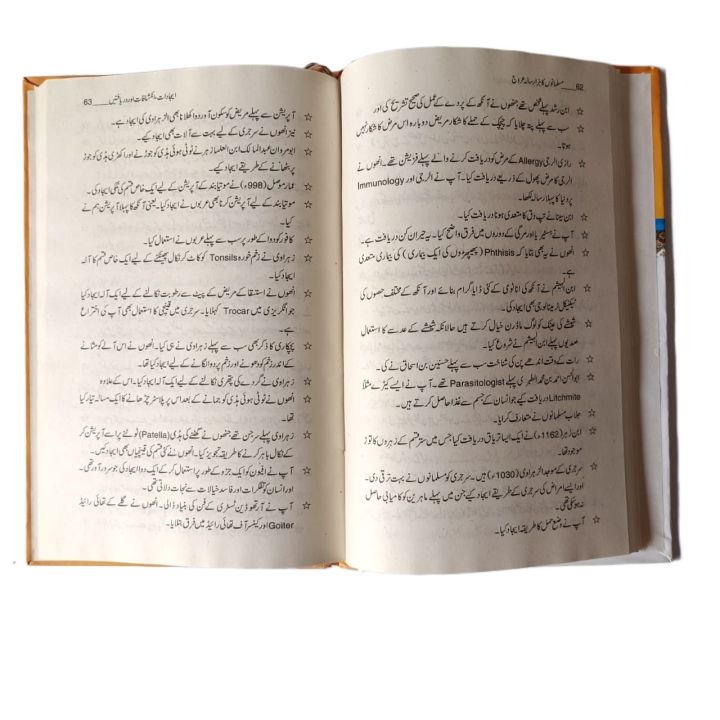 62 ___ مسلمانوں کا ہزار سالہ عروج
☆ ابن رشد پہلے شخص تھے جنھوں نے آنکھ کے پردے کے عمل کی صحیح تشریح کی اور
☆ سب سے پہلے پتہ چلایا کہ چیچک کے حملے کا شکار مریض دوبارہ اس مرض کا شکار نہیں
ہوتا۔
☆ رازی الرجی Allergy کے مرض کو دریافت کرنے والے پہلے فزیشن تھے۔ انھوں نے
الرجی کا مرض پھول کے ذریعے دریافت کیا۔ آپ نے الرجی اور Immunology
پر دنیا کا پہلا رسالہ لکھا۔
☆ ابن سینا نے تپ دق کا متعدی ہونا دریافت کیا۔
☆ آپ نے ہسٹیریا اور مرگی کے دوروں میں فرق واضح کیا۔ یہ حیران کن دریافت ہے۔
☆ انھوں نے یہ بھی بتایا کہ Phthisis (پھیپھڑوں کی ایک بیماری) کی بیماری متعدی
ہے۔
☆ ابن الہیثم نے آنکھ کی اناٹومی کے کئی ڈایاگرام بنائے اور آنکھ کے مختلف حصوں کی
ٹیکنیکل ٹرمینالوجی بھی ایجاد کی۔
☆ شیشے کی عینک کو لوگ ماڈرن خیال کرتے ہیں حالانکہ شیشے کے عدسے کا استعمال
صدیوں پہلے ابن الہیثم نے شروع کیا۔
☆ رات کے وقت اندھے پن کی شناخت سب سے پہلے حنین بن اسحاق نے کی۔
☆ ابوالحسن احمد بن محمد الطبری پہلے Parasitologist تھے۔ آپ نے ایسے کیڑے مثلاً
Litchmite دریافت کیے جو انسان کے جسم سے غذا حاصل کرتے ہیں۔
☆ جلاب مسلمانوں نے متعارف کرایا۔
☆ ابن زہر (1162ء) نے ایک ایسا تریاق دریافت کیا جس میں ستر قسم کے زہروں کا توڑ
موجود تھا۔
☆ سرجری کے موجد الزہراوی (1030ء) ہیں۔ سرجری کو مسلمانوں نے بہت ترقی دی۔
اور ایسے امراض کی سرجری کے طریقے ایجاد کیے جن میں پہلے ماہرین کو کامیابی حاصل
نہ ہو سکی تھی۔
☆ آپ نے وضع حمل کا طریقہ ایجاد کیا۔
ایجادات، انکشافات اور دریافتیں ___ 63
☆ آپریشن سے پہلے مریض کو سکون آور دوا کھلانا بھی الزہراوی کی ایجاد ہے۔
☆ نیز انھوں نے سرجری کے لیے بہت سے آلات بھی ایجاد کیے۔
☆ ابومروان عبدالمالک ابن العلماز ہر نے ٹوٹی ہوئی ہڈی کو جوڑنے اور اکھڑی ہڈی کو جوڑ
پر بٹھانے کے طریقے ایجاد کیے۔
☆ عمار موصل (998ء) نے موتیا بند کے آپریشن کے لیے ایک خاص قسم کی نلکی ایجاد کی۔
☆ موتیا بند کے لیے آپریشن کرنا بھی عربوں نے ایجاد کیا۔ یعنی آنکھ کا پہلا آپریشن ہم نے
کیا۔
☆ کافور کو دوا کے طور پر سب سے پہلے عربوں نے استعمال کیا۔
☆ زہراوی نے زخم خوردہ Tonsils کو کاٹ کر نکال پھینکنے کے لیے ایک خاص قسم کا آلہ
ایجاد کیا۔
☆ انھوں نے استسقا کے مریض کے پیٹ سے رطوبت نکالنے کے لیے ایک آلہ ایجاد کیا
جو انگریزی میں Trocar کہلایا۔ سرجری میں قینچی کا استعمال بھی آپ کی اختراع
ہے۔
☆ پچکاری کا ذکر بھی سب سے پہلے زہراوی نے ہی کیا۔ انھوں نے اس آلے کو مثانے
کے اندر زخم کو دھونے اور زخم پر دوا لگانے کے لیے ایجاد کیا تھا۔
☆ زہراوی نے گردے کی پتھری نکالنے کے لیے ایک آلہ ایجاد کیا۔ اس کے علاوہ
☆ انھوں نے ٹوٹی ہوئی ہڈی کو جمانے کے بعد اس پر پلاستر چڑھانے کا ایک مسالہ تیار کیا
تھا۔
☆ زہراوی پہلے سرجن تھے جنھوں نے گھٹنے کی ہڈی (Patella) ٹوٹنے پر اسے آپریشن کر
کے نکال باہر کرنے کا طریقہ تجویز کیا۔ انھوں نے کئی قسم کی قینچیاں بھی ایجاد کیں۔
☆ آپ نے افیون کو ایک جزو کے طور پر استعمال کر کے ایک دوا ایجاد کی جو سرور آور تھی۔
اور انسان کو تفکرات اور فاسد خیالات سے نجات دلاتی تھی۔
☆ آپ نے آرتھوڈین ٹسٹری کے فن کی بنیاد ڈالی۔ انھوں نے گلے کے تھائی رائیڈ
Goiter اور کینسر آف تھائی رائیڈ میں فرق بتلایا۔